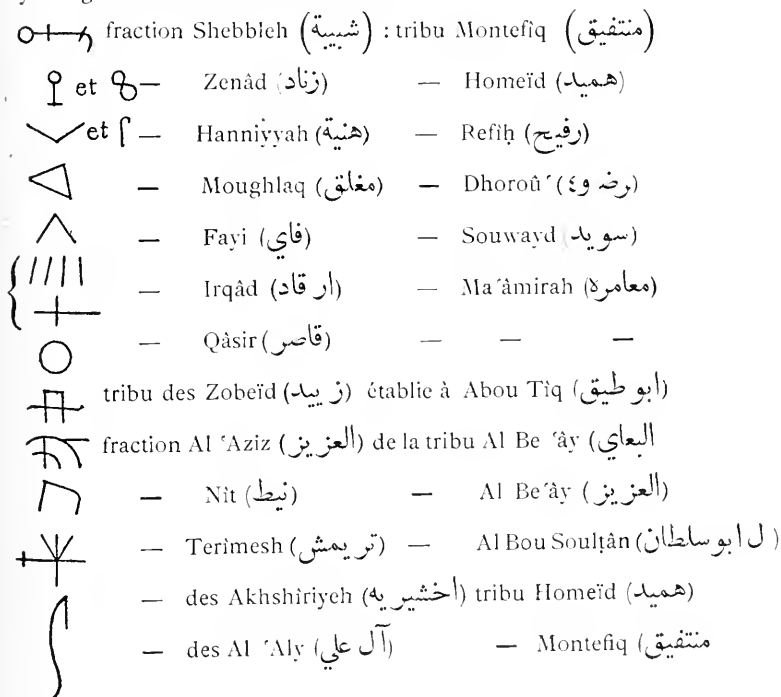 fraction Shebbleh (شبيبة) : tribu Montefìq (منتفيق)
et — Zenâd (زناد) — Homeïd (هميد)
et — Hanniyyah (هنية) — Refìḥ (رفيح)
— Moughlaq (مغلق) — Dhoroû´ (رضو٤)
— Fayi (فاي) — Souwayd (سويد
— Irqâd (ارقاد) — Ma´âmirah (معامرة)
— Qâsir (قاصر) — — —
tribu des Zobeïd (زبيد) établie à Abou Tìq (ابو طيق)
fraction Al ‘Aziz (العزيز) de la tribu Al Be ‘ây (البعاي
— Nît (نيط) — Al Be´ây (العزيز)
— Terìmesh (تريمش) — Al Bou Soulṭân (ل ابو سلطان)
— des Akhshîriyeh (اخشيريه) tribu Homeïd (هميد)
— des Al ‘Aly (آل علي) — Montefiq (منتفيق